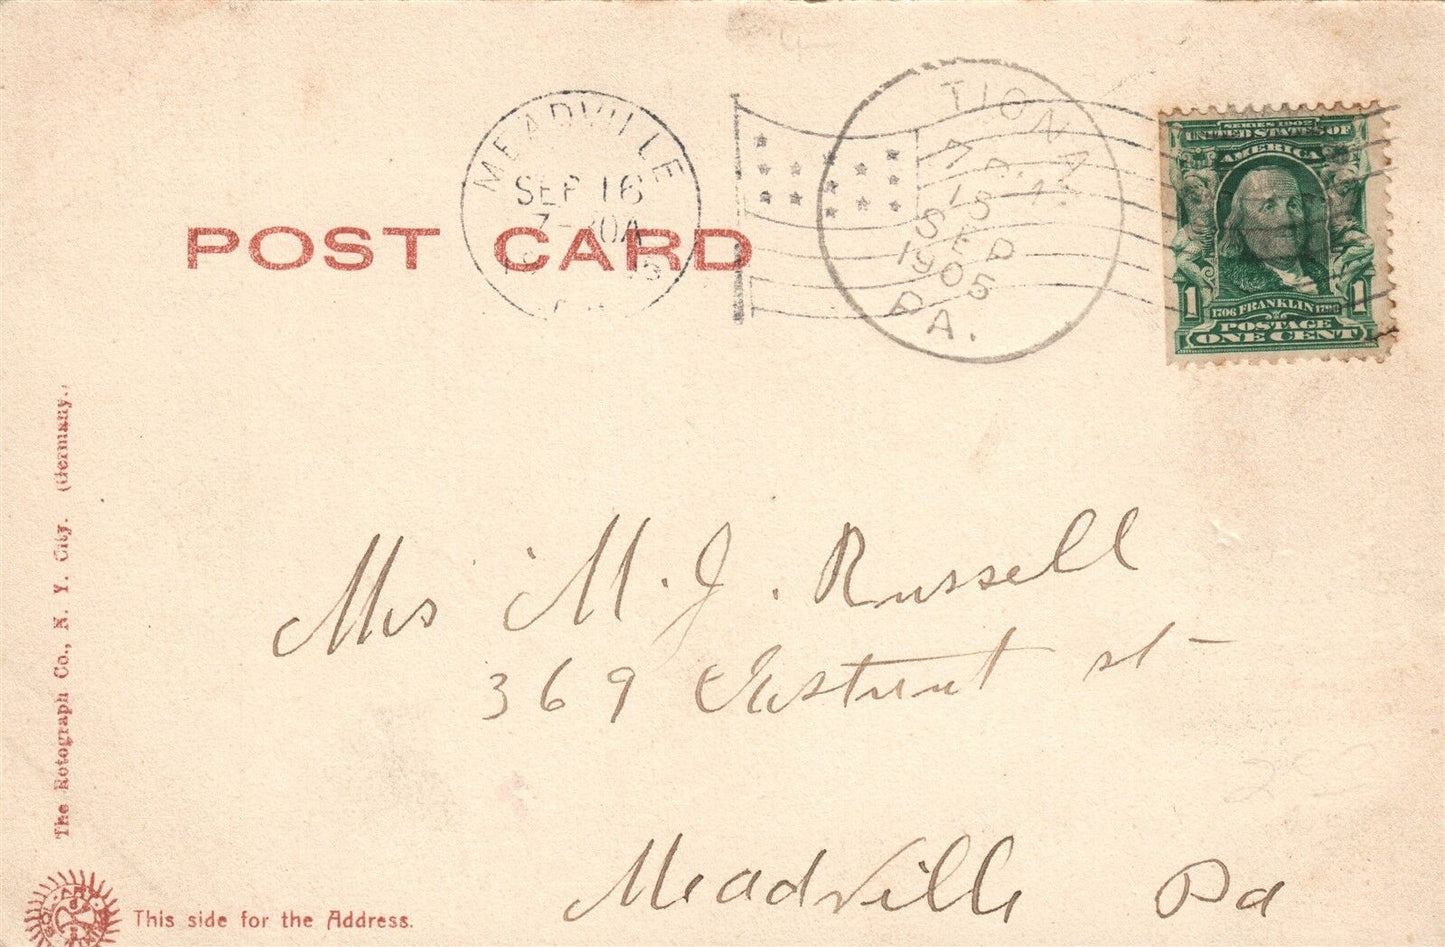 MEADVILLE
SEP 16
TIONA
A.M.
15
SEP
1905
PA.
SERIES 1902
UNITED STATES OF
AMERICA
1 1
1706 FRANKLIN 1790
POSTAGE
ONE CENT
POST CARD
Mrs M. J. Russell
369 st
Meadville Pa
The Rotograph Co., N. Y. City. (Germany.)
This side for the Address.